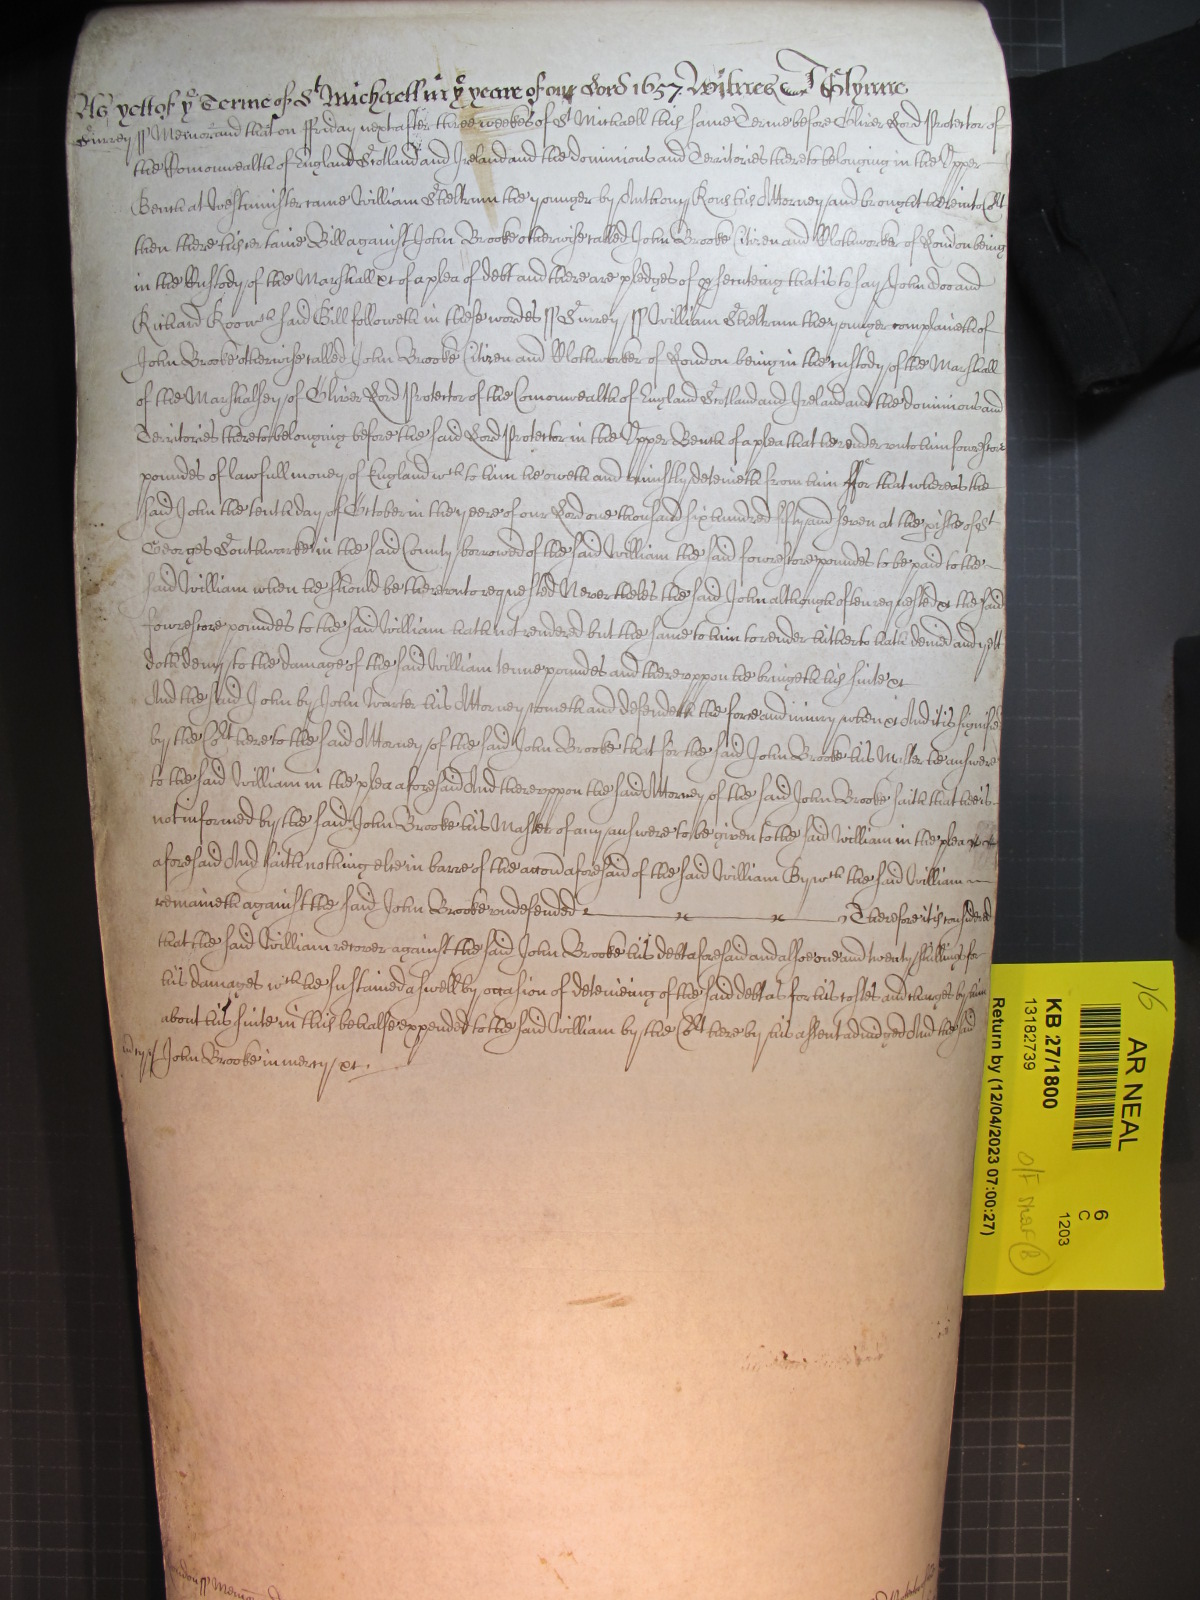 As yett of ye Terme of St Michaell in ye yeare of our Lord 1657 Witnes J Glynne
Surrey ss Memorand that on ffriday next after three weekes of St Michaell this same Terme before Oliver Lord Protector of
the Comonwealth of England Scotland and Ireland and the dominions and Territories thereto belonging in the Upper
Bench at Westminster came William Sheltrum the younger by Anthony Rous his Attorney and brought here into Ct
then there his certaine Bill against John Brooke otherwise called John Brooke Citizen and Clothworker of London being
in the Custody of the Marshall xc of a plea of debt and there are pledges of prsecuteing that is to say John Doo and
Richard Roo wch said Bill followeth in these wordes ss Surrey ss William Sheltrum the younger complaineth of
John Brooke otherwise called John Brooke Citizen and Clothworker of London being in the custody of the Marshall
of the Marshalsey of Oliver Lord Protector of the Comonwealth of England Scotland and Ireland and the dominions and
Territories thereto belonging before the said Lord Protector in the Upper Bench of a plea that he render unto him fowrescore
poundes of lawfull money of England wch to him he oweth and uniustly deteineth from him ffor that whereas the
said John the tenth day of October in the yeere of our Lord one thousand six hundred fifty and seven at the pishe of St
Georges Southwarke in the said County borrowed of the said William the said fowrescore poundes to be paid to the
said William when he should be thereunto requested Neverthelesse the said John although often requested xc the said
fowrescore poundes to the said William hath not rendered but the same to him to render hitherto hath denied and yett
doth deny to the damage of the said William tenne poundes and thereuppon he bringeth his suite xc
And the said John by John Warter his Attorney cometh and defendeth the force and iniury when xc And it is signified
by the Cot here to the said Attorney of the said John Brooke that for the said John Brooke his Master he answere
to the said William in the plea aforesaid And thereuppon the said Attorney of the said John Brooke saith that he is
not informed by the said John Brooke his Master of any answere to be given to the said William in the plea
aforesaid And saith nothing else in barre of the accon aforesaid of the said William By wch the said William
remaineth against the said John Brooke undefended Therefore it is considered
that the said William recover against the said John Brooke his debt aforesaid and alsoe one and twenty shillings for
his damages wch he sustained aswell by occasion of deteineing of the said debt as for his costes and charges by him
about his suite in this behalfe expended to the said William by the Ct here by his assent adiudged And the said
John Brooke in mercy xc.
AR NEAL
16
KB 27/1800
13182739
Return by (12/04/2023 07:00:27)
6
C
1203